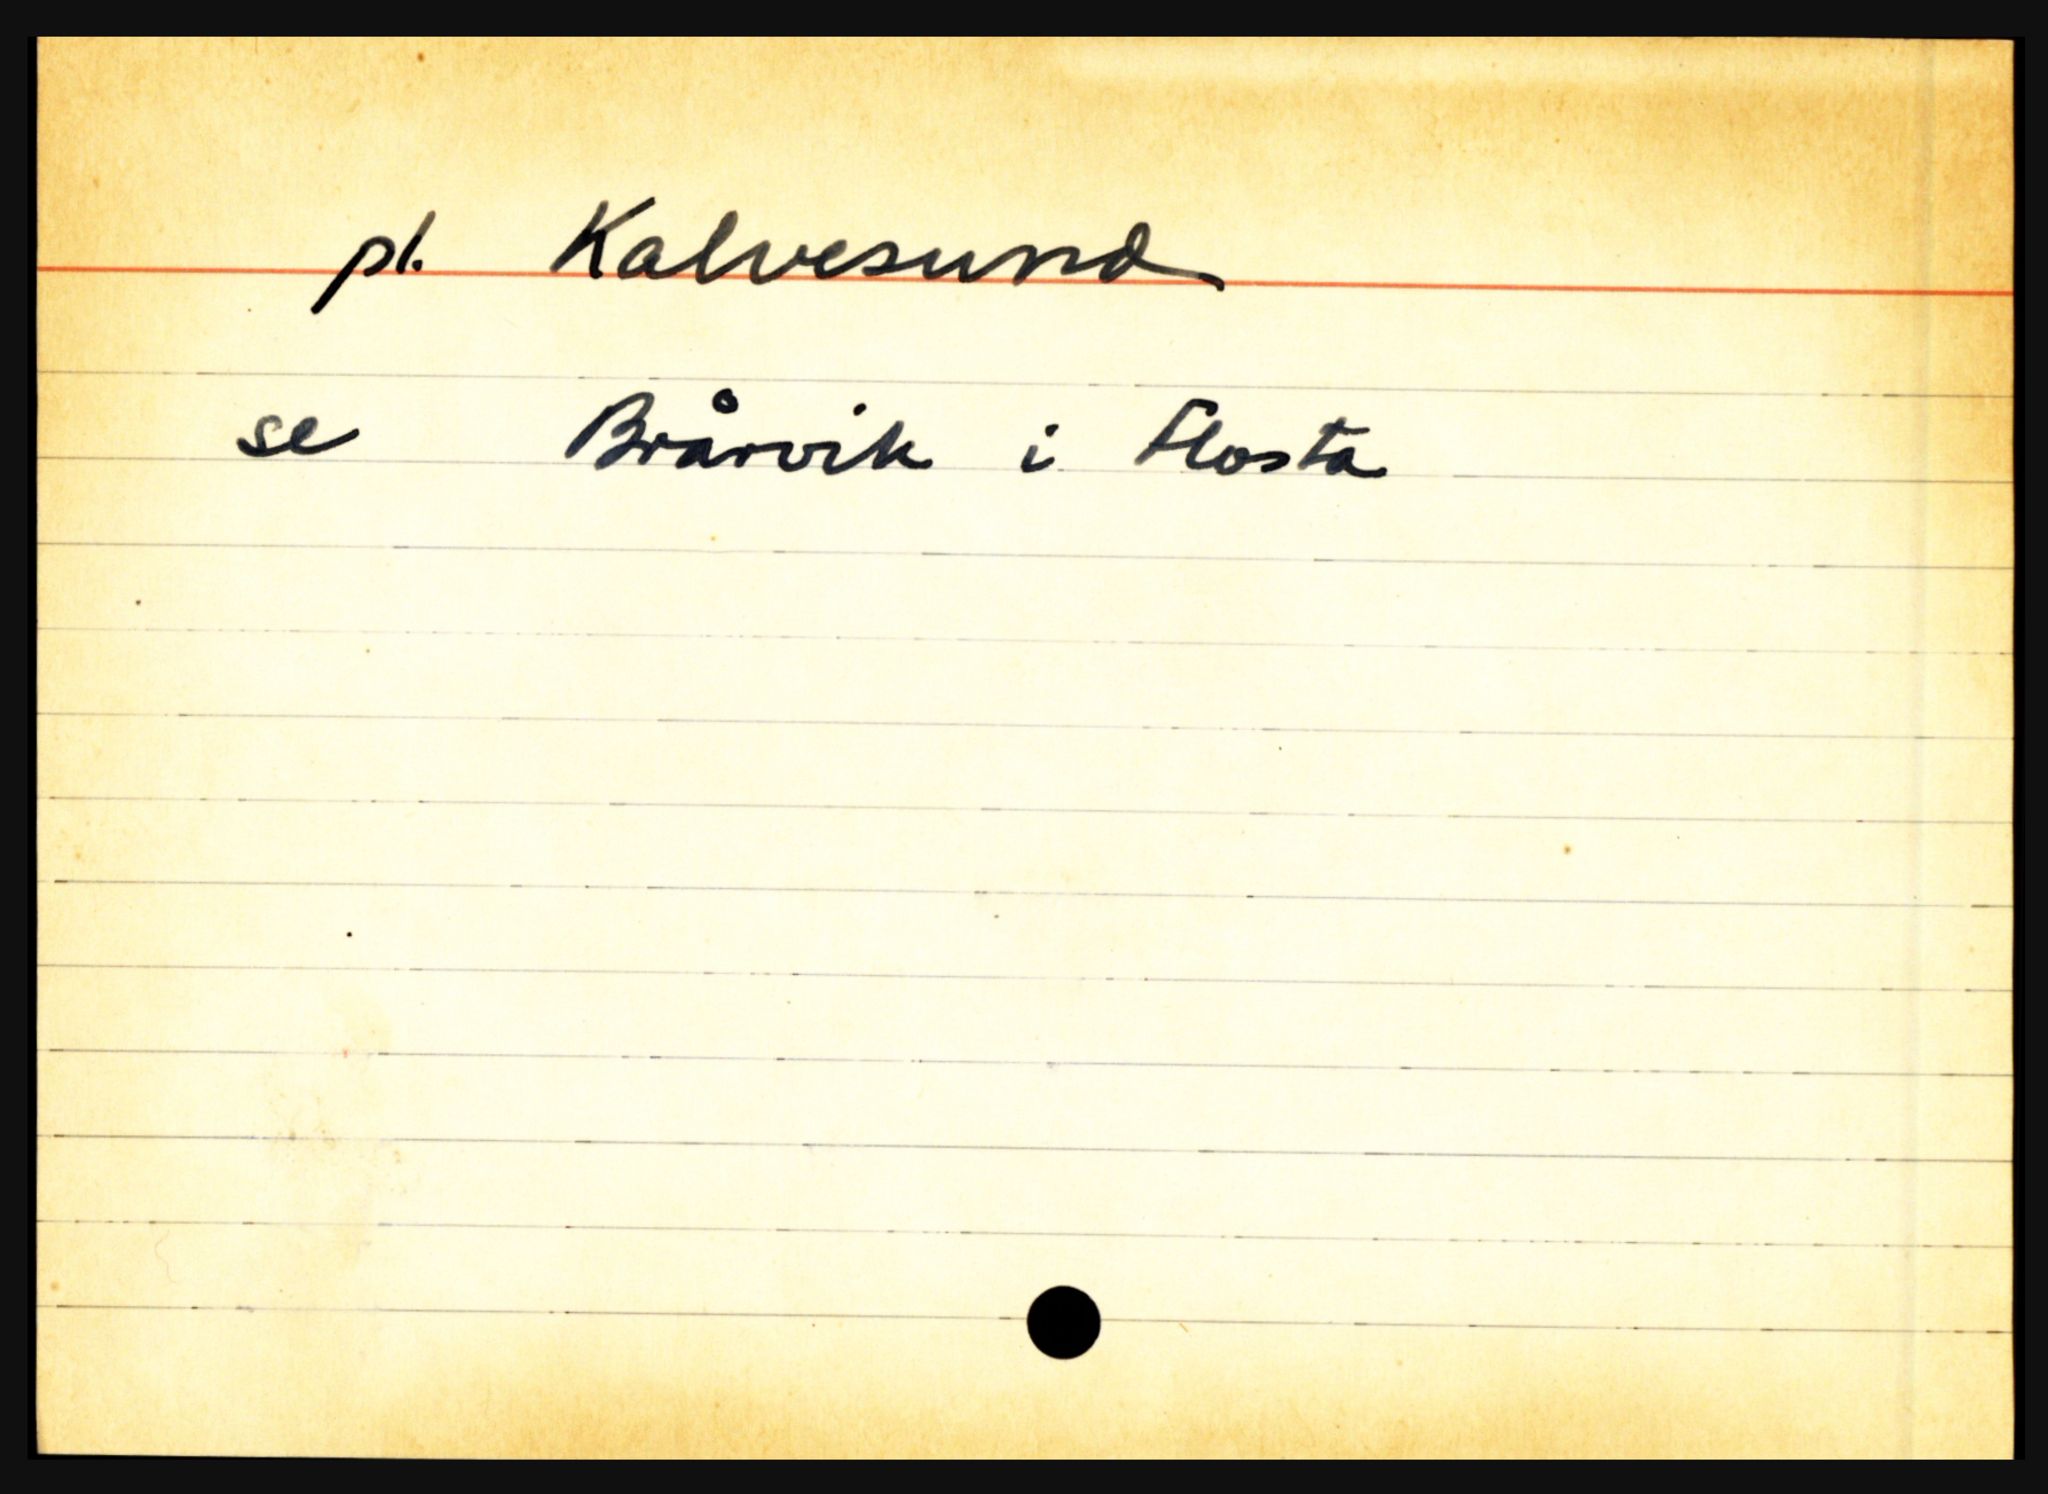 pl. Kalvesund
se Brårvik i Flosta